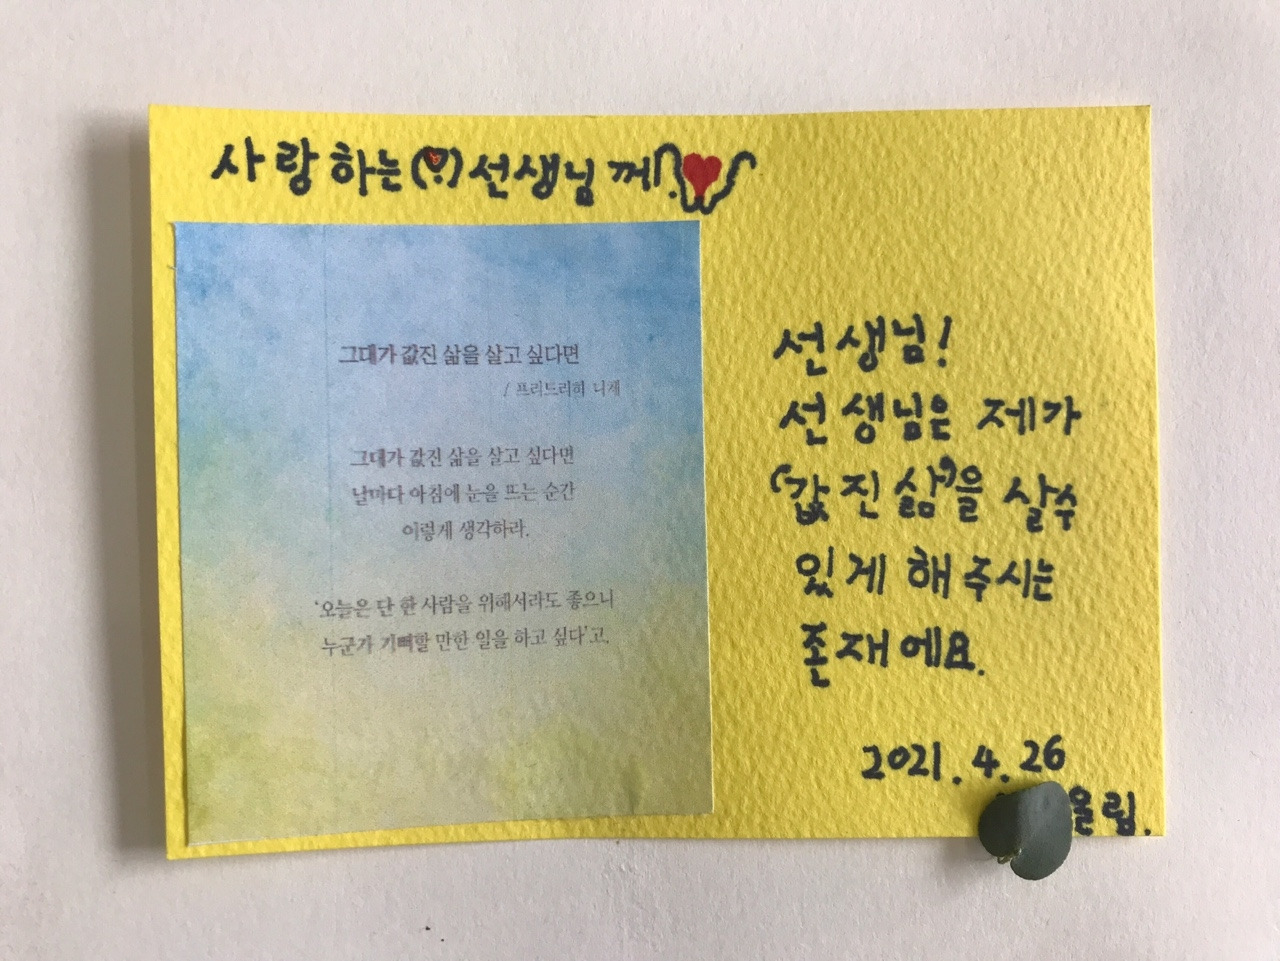 사랑하는(?)선생님께.
그대가 값진 삶을 살고 싶다면
/ 프리드리히 니체
그대가 값진 삶을 살고 싶다면
날마다 아침에 눈을 뜨는 순간
이렇게 생각하라.
'오늘은 단 한 사람을 위해서라도 좋으니
누군가 기뻐할 만한 일을 하고 싶다'고.
선생님!
선생님은 제가
"값진 삶"을 살수
있게 해주시는
존재에요.
2021.4.26
올림.